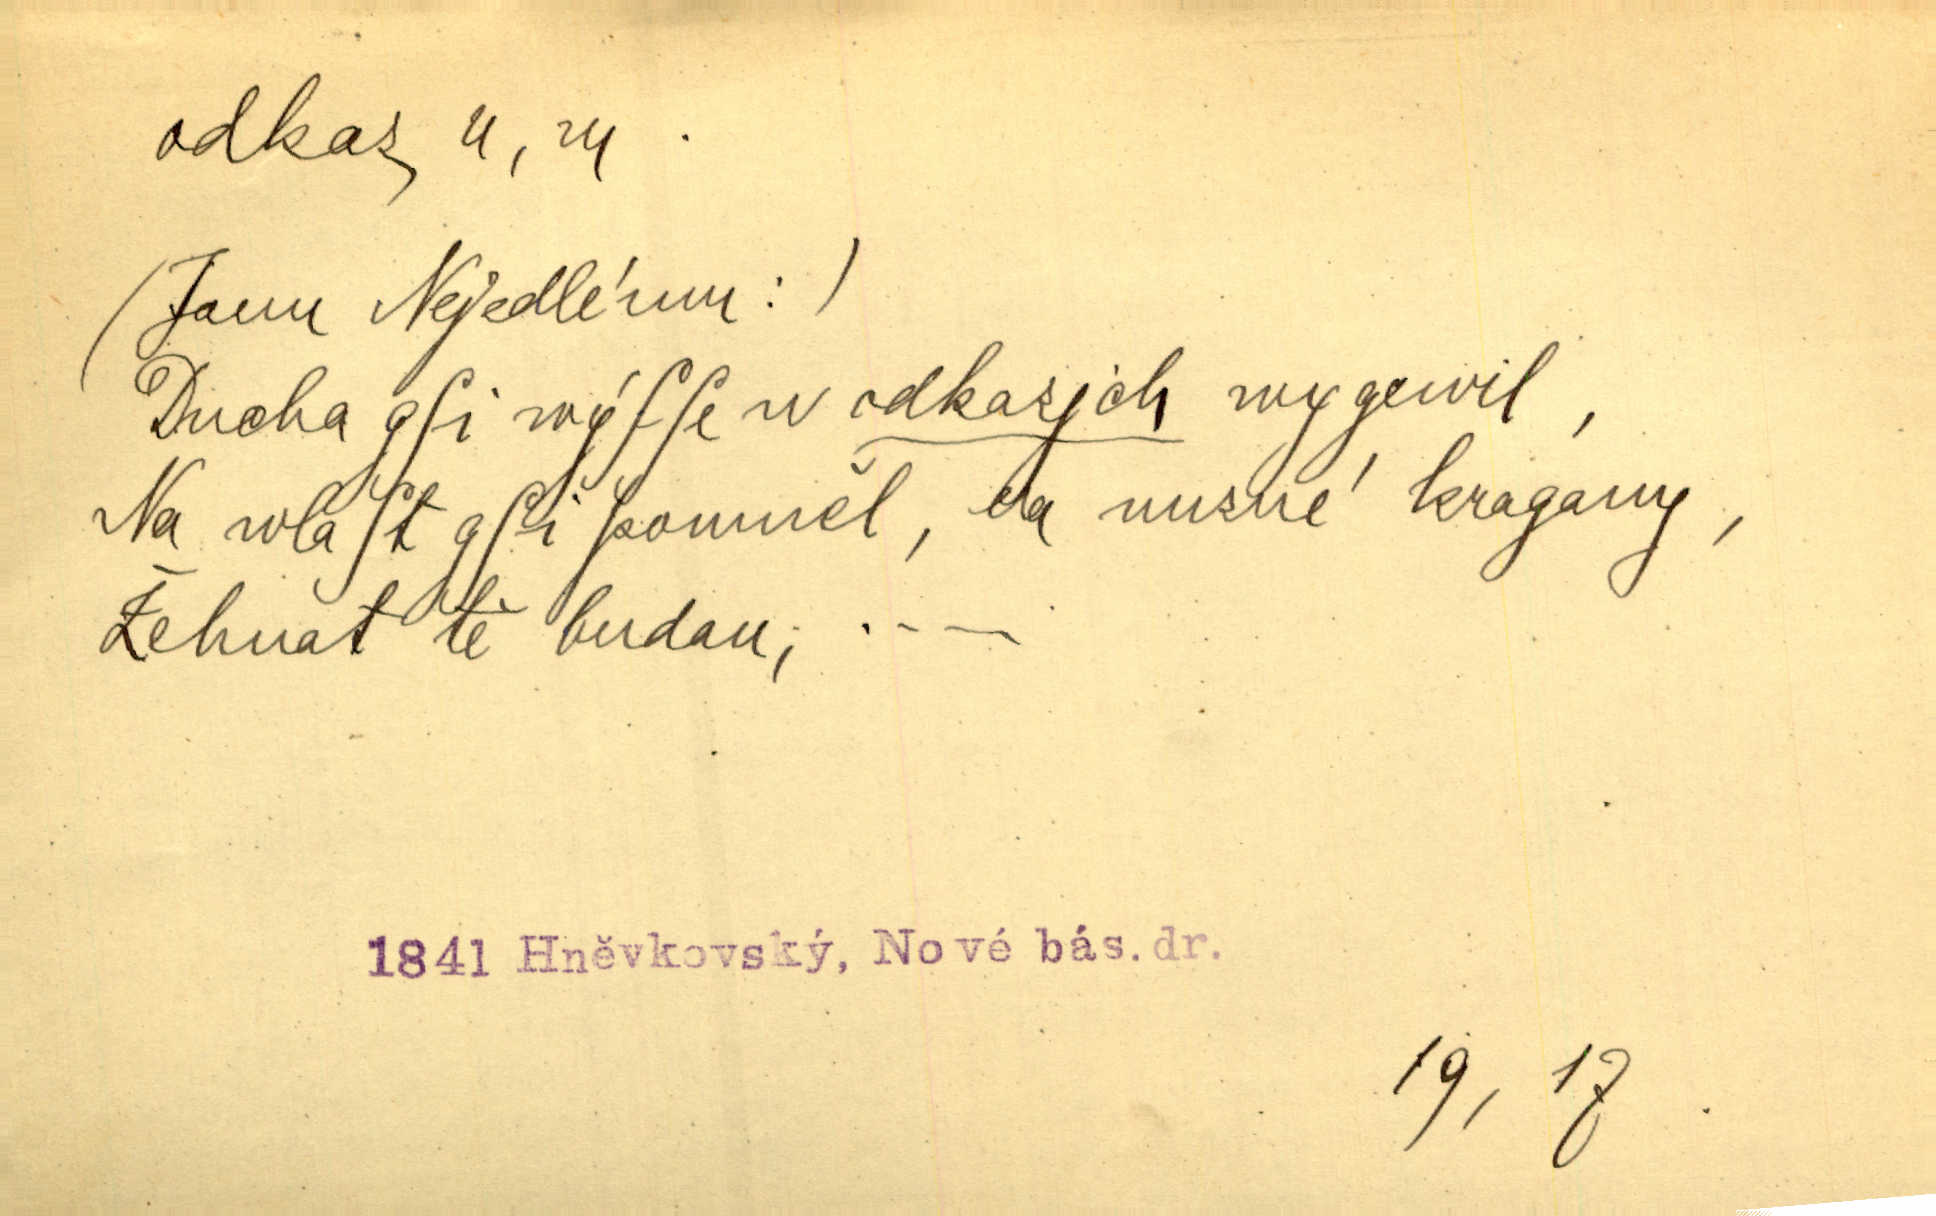 odkaz, u, m
(Janu Nejedlému:)
Ducha gſi wýſſe w odkazjch wygewil,
Na wlaſt gſi pomněl, na nuzné kragany,
Žehnat tě budau, . - —
1841 Hněvkovský, Nové bás. dr.
19, 17